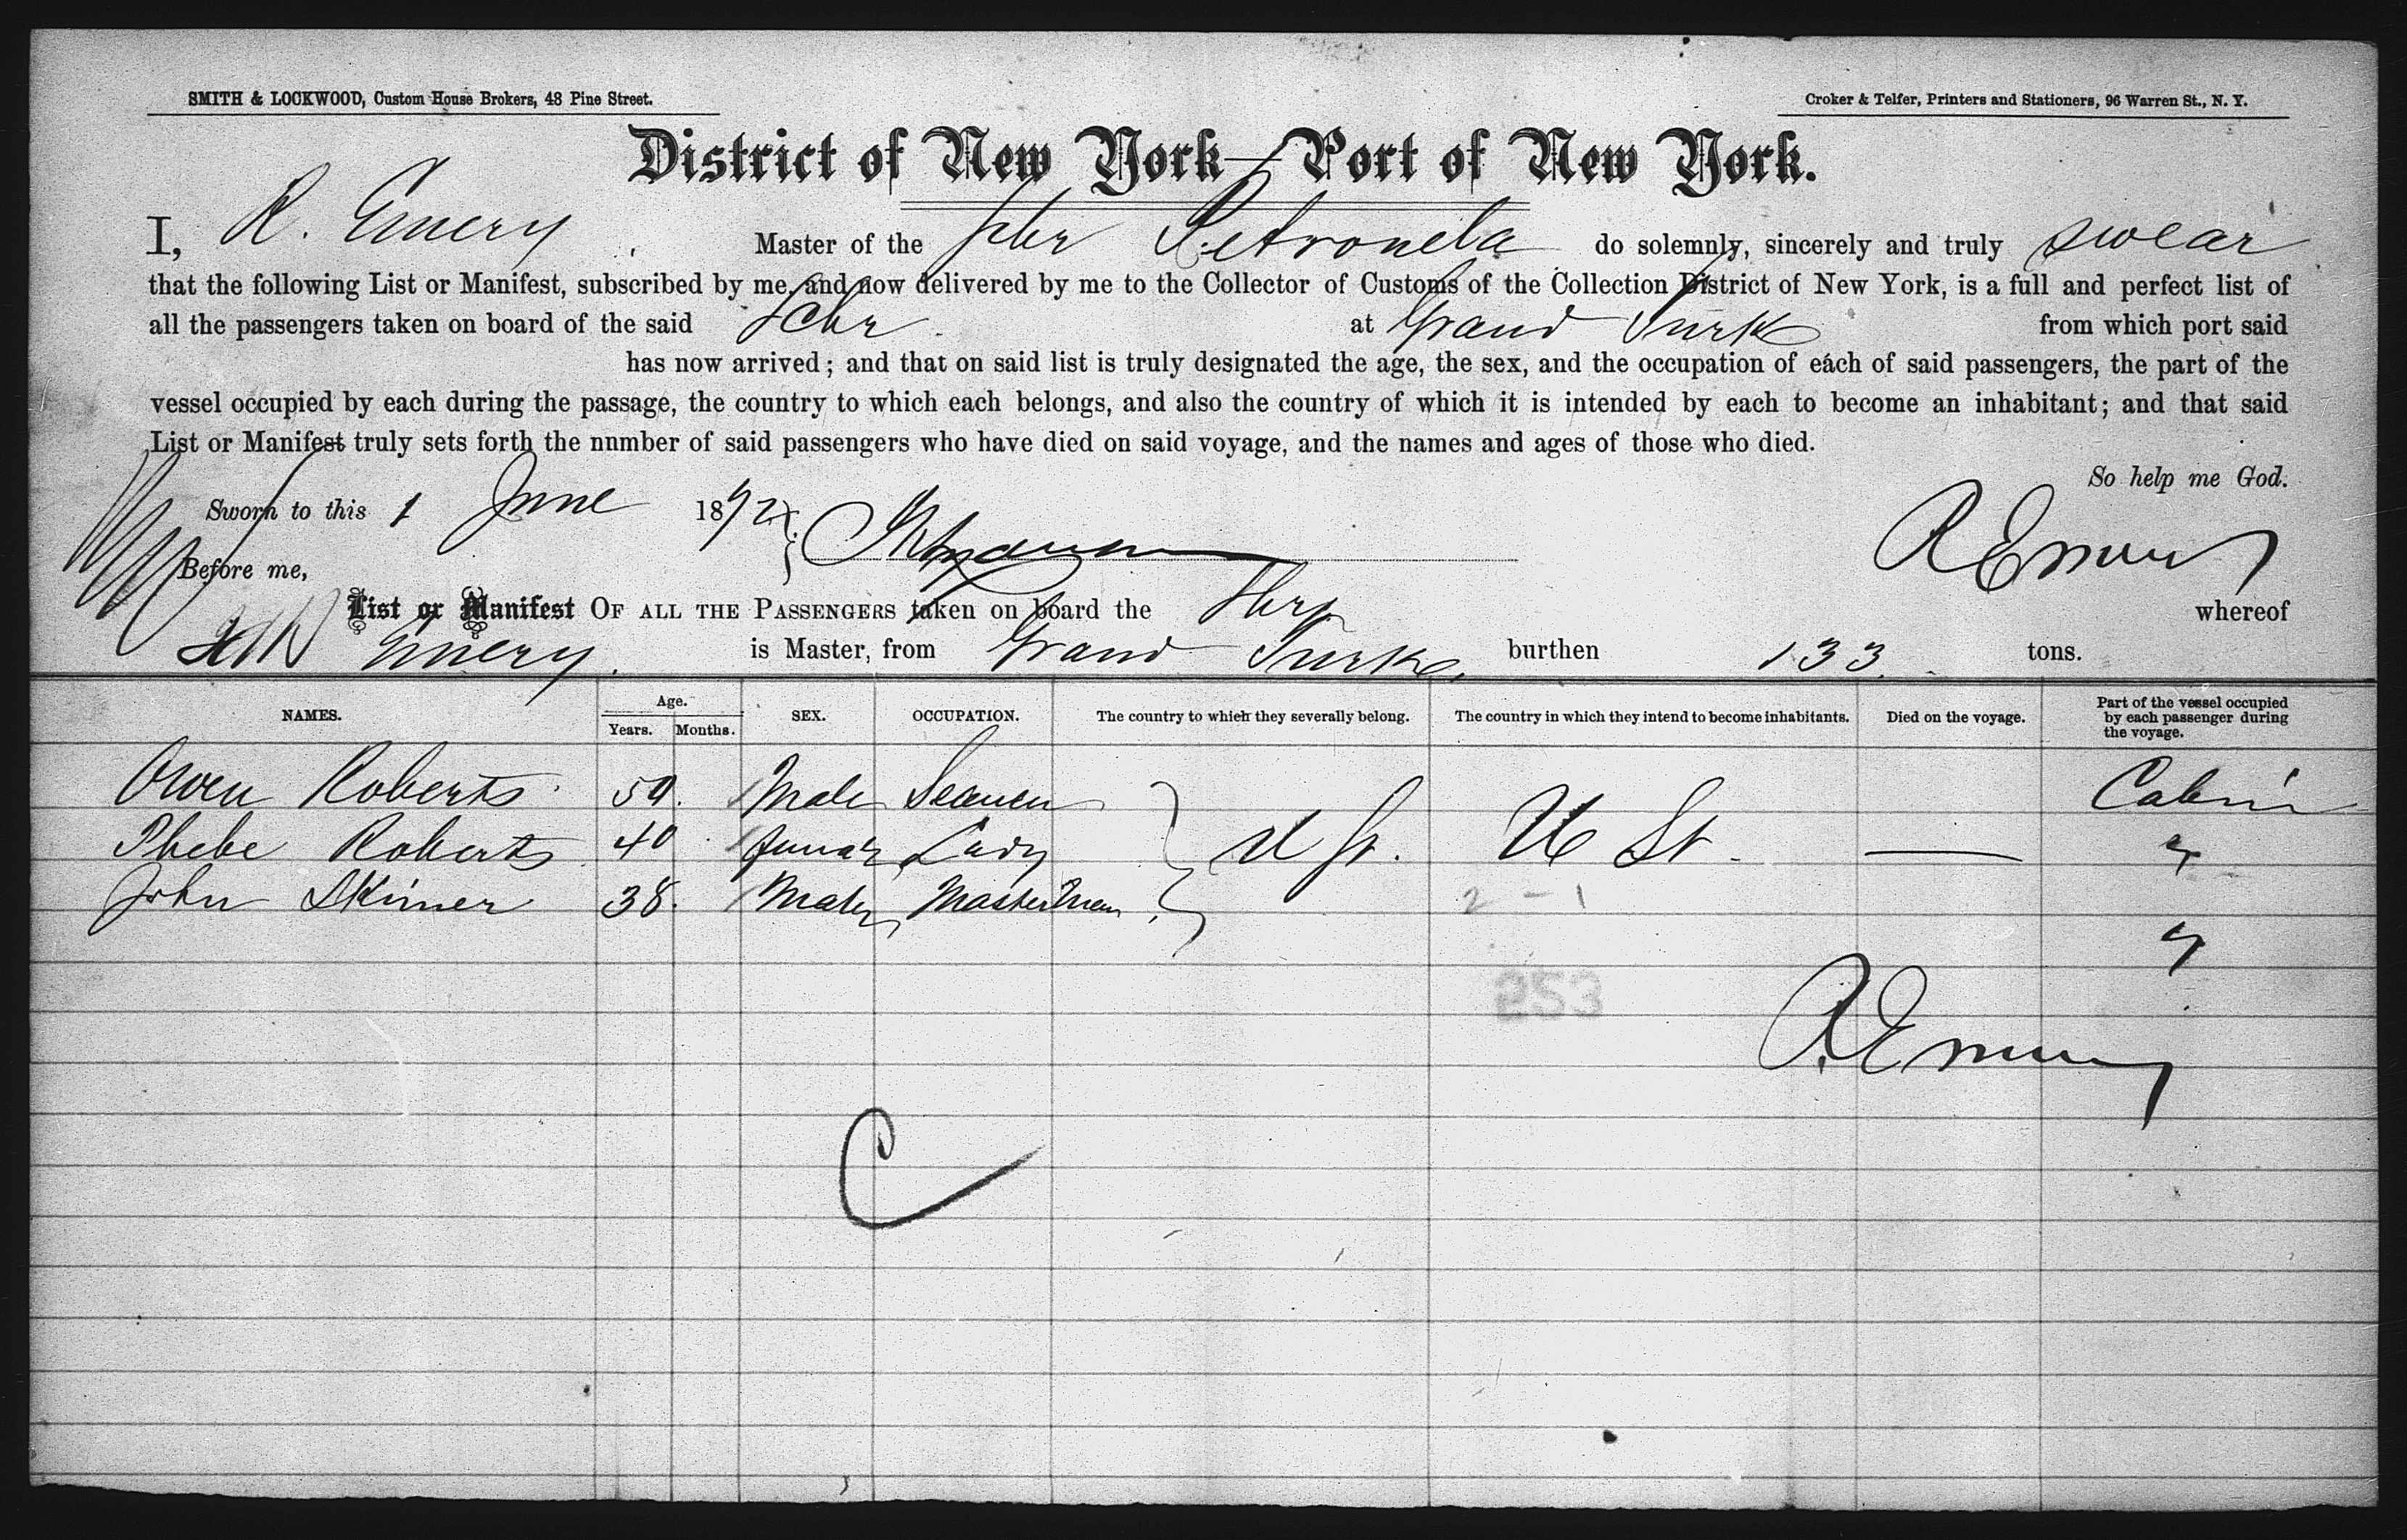 SMITH & LOCKWOOD, Custom House Brokers, 48 Pine Street.
Croker & Telfer, Printers and Stationers, 96 Warren St., N. Y.
District of New York—Port of New York.
I, R. Emery Master of the Schr Petronela do solemnly, sincerely and truly swear
that the following List or Manifest, subscribed by me, and now delivered by me to the Collector of Customs of the Collection District of New York, is a full and perfect list of
all the passengers taken on board of the said Schr at Grand Turk from which port said
has now arrived; and that on said list is truly designated the age, the sex, and the occupation of each of said passengers, the part of the
vessel occupied by each during the passage, the country to which each belongs, and also the country of which it is intended by each to become an inhabitant; and that said
List or Manifest truly sets forth the nnmber of said passengers who have died on said voyage, and the names and ages of those who died.
So help me God.
Sworn to this 1 June 1872 R Emery
Before me,
List or Manifest OF ALL THE PASSENGERS taken on board the whereof
Emery is Master, from Grand Turk burthen 133 tons.
NAMES. Age. Years. Months. SEX. OCCUPATION. The country to which they severally belong. The country in which they intend to become inhabitants. Died on the voyage. Part of the vessel occupied by each passenger during the voyage.
Owen Roberts 50. Male Seamen Cabin
Phebe Roberts 40 Lady U St. U St — "
John Skinner 38. Male "
2 - 1
253
R. Emery
C